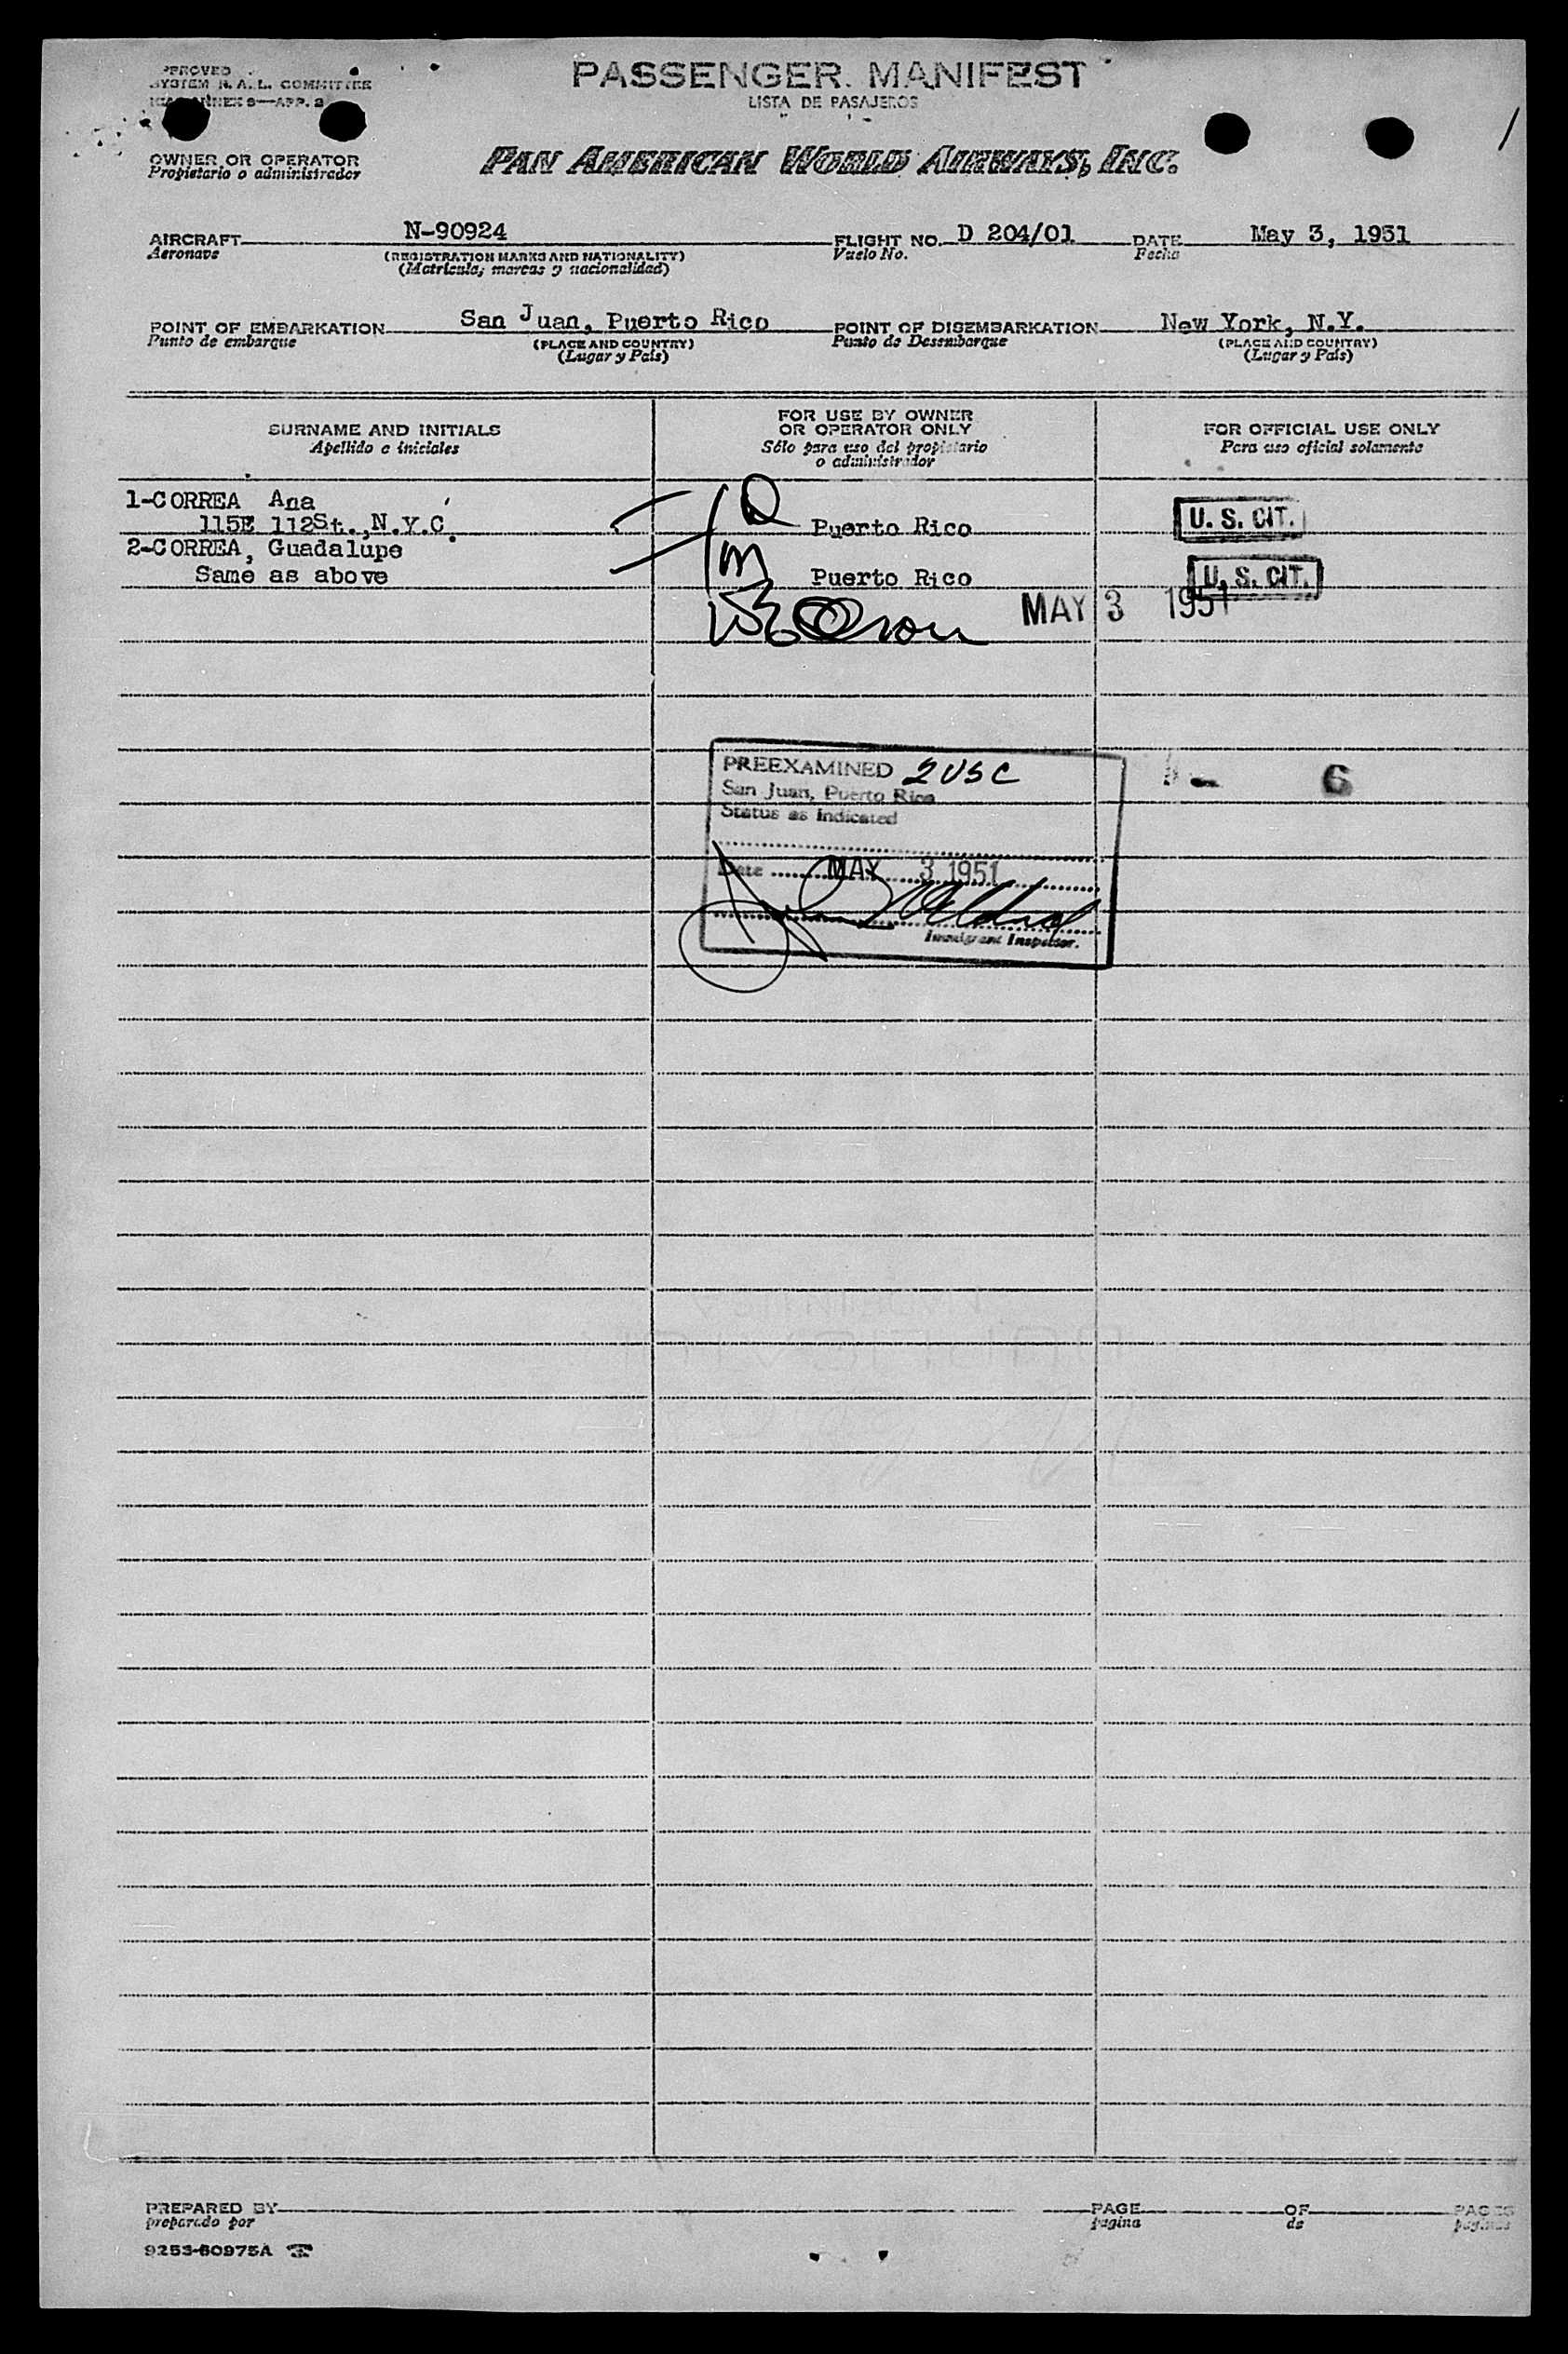 PASSENGER MANIFEST
LISTA DE PASAJEROS
SYSTEM N. A. L. COMMITTEE
OWNER OR OPERATOR
Propietario o administrador
PAN AMERICAN WORLD AIRWAYS, INC.
AIRCRAFT N-90924 FLIGHT NO. D 204/01 DATE May 3, 1951
Aeronave (REGISTRATION MARKS AND NATIONALITY) Vuelo No. Fecha
(Matrícula, marcas y nacionalidad)
POINT OF EMBARKATION San Juan, Puerto Rico POINT OF DISEMBARKATION New York, N.Y.
Punto de embarque (PLACE AND COUNTRY) Punto de Desembarque (PLACE AND COUNTRY)
(Lugar y País) (Lugar y País)
SURNAME AND INITIALS FOR USE BY OWNER OR OPERATOR ONLY FOR OFFICIAL USE ONLY
Apellido e iniciales Sólo para uso del propietario o administrador Para uso oficial solamente
1-CORREA Ana
115E 112St.,N.Y.C. Puerto Rico U. S. CIT.
2-CORREA, Guadalupe
Same as above Puerto Rico U. S. CIT.
MAY 3 1951
PREEXAMINED 2 USC
San Juan, Puerto Rico
Status as Indicated
6
Date MAY 3 1951
Immigrant Inspector.
PREPARED BY PAGE OF PAGES
preparado por pagina de paginas
9253-60975A